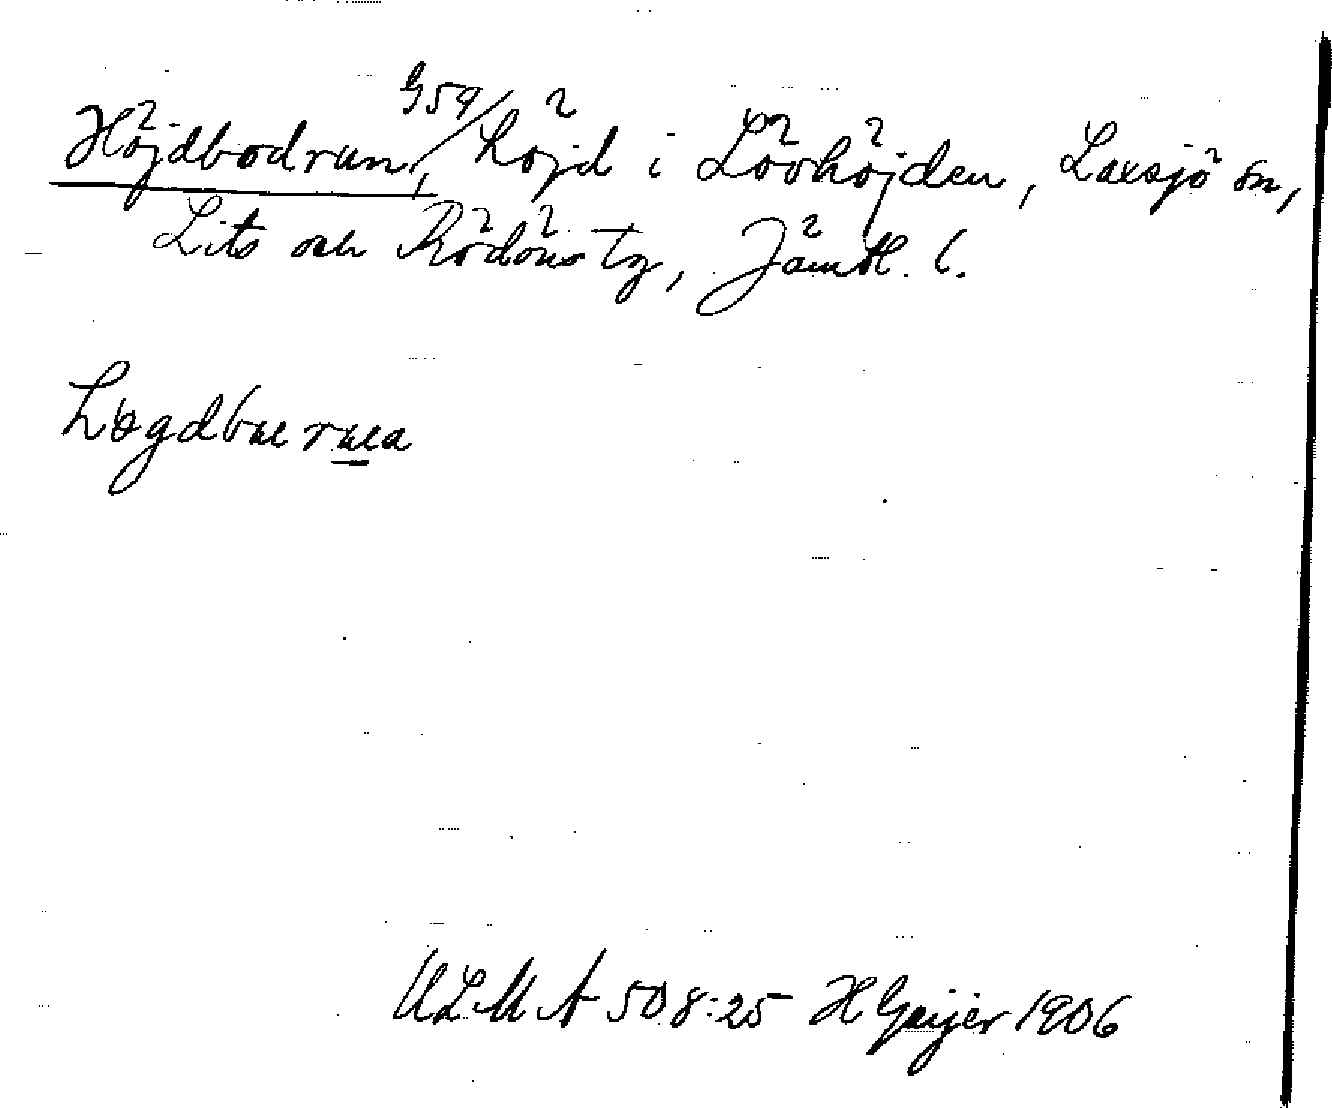 Höjdbodrun, 959/ höjd i Lövhöjden, Laxsjö sn,
Lits och Rödöns tg, Jämtl. l.
ULMA 508:25 H Geijer 1906